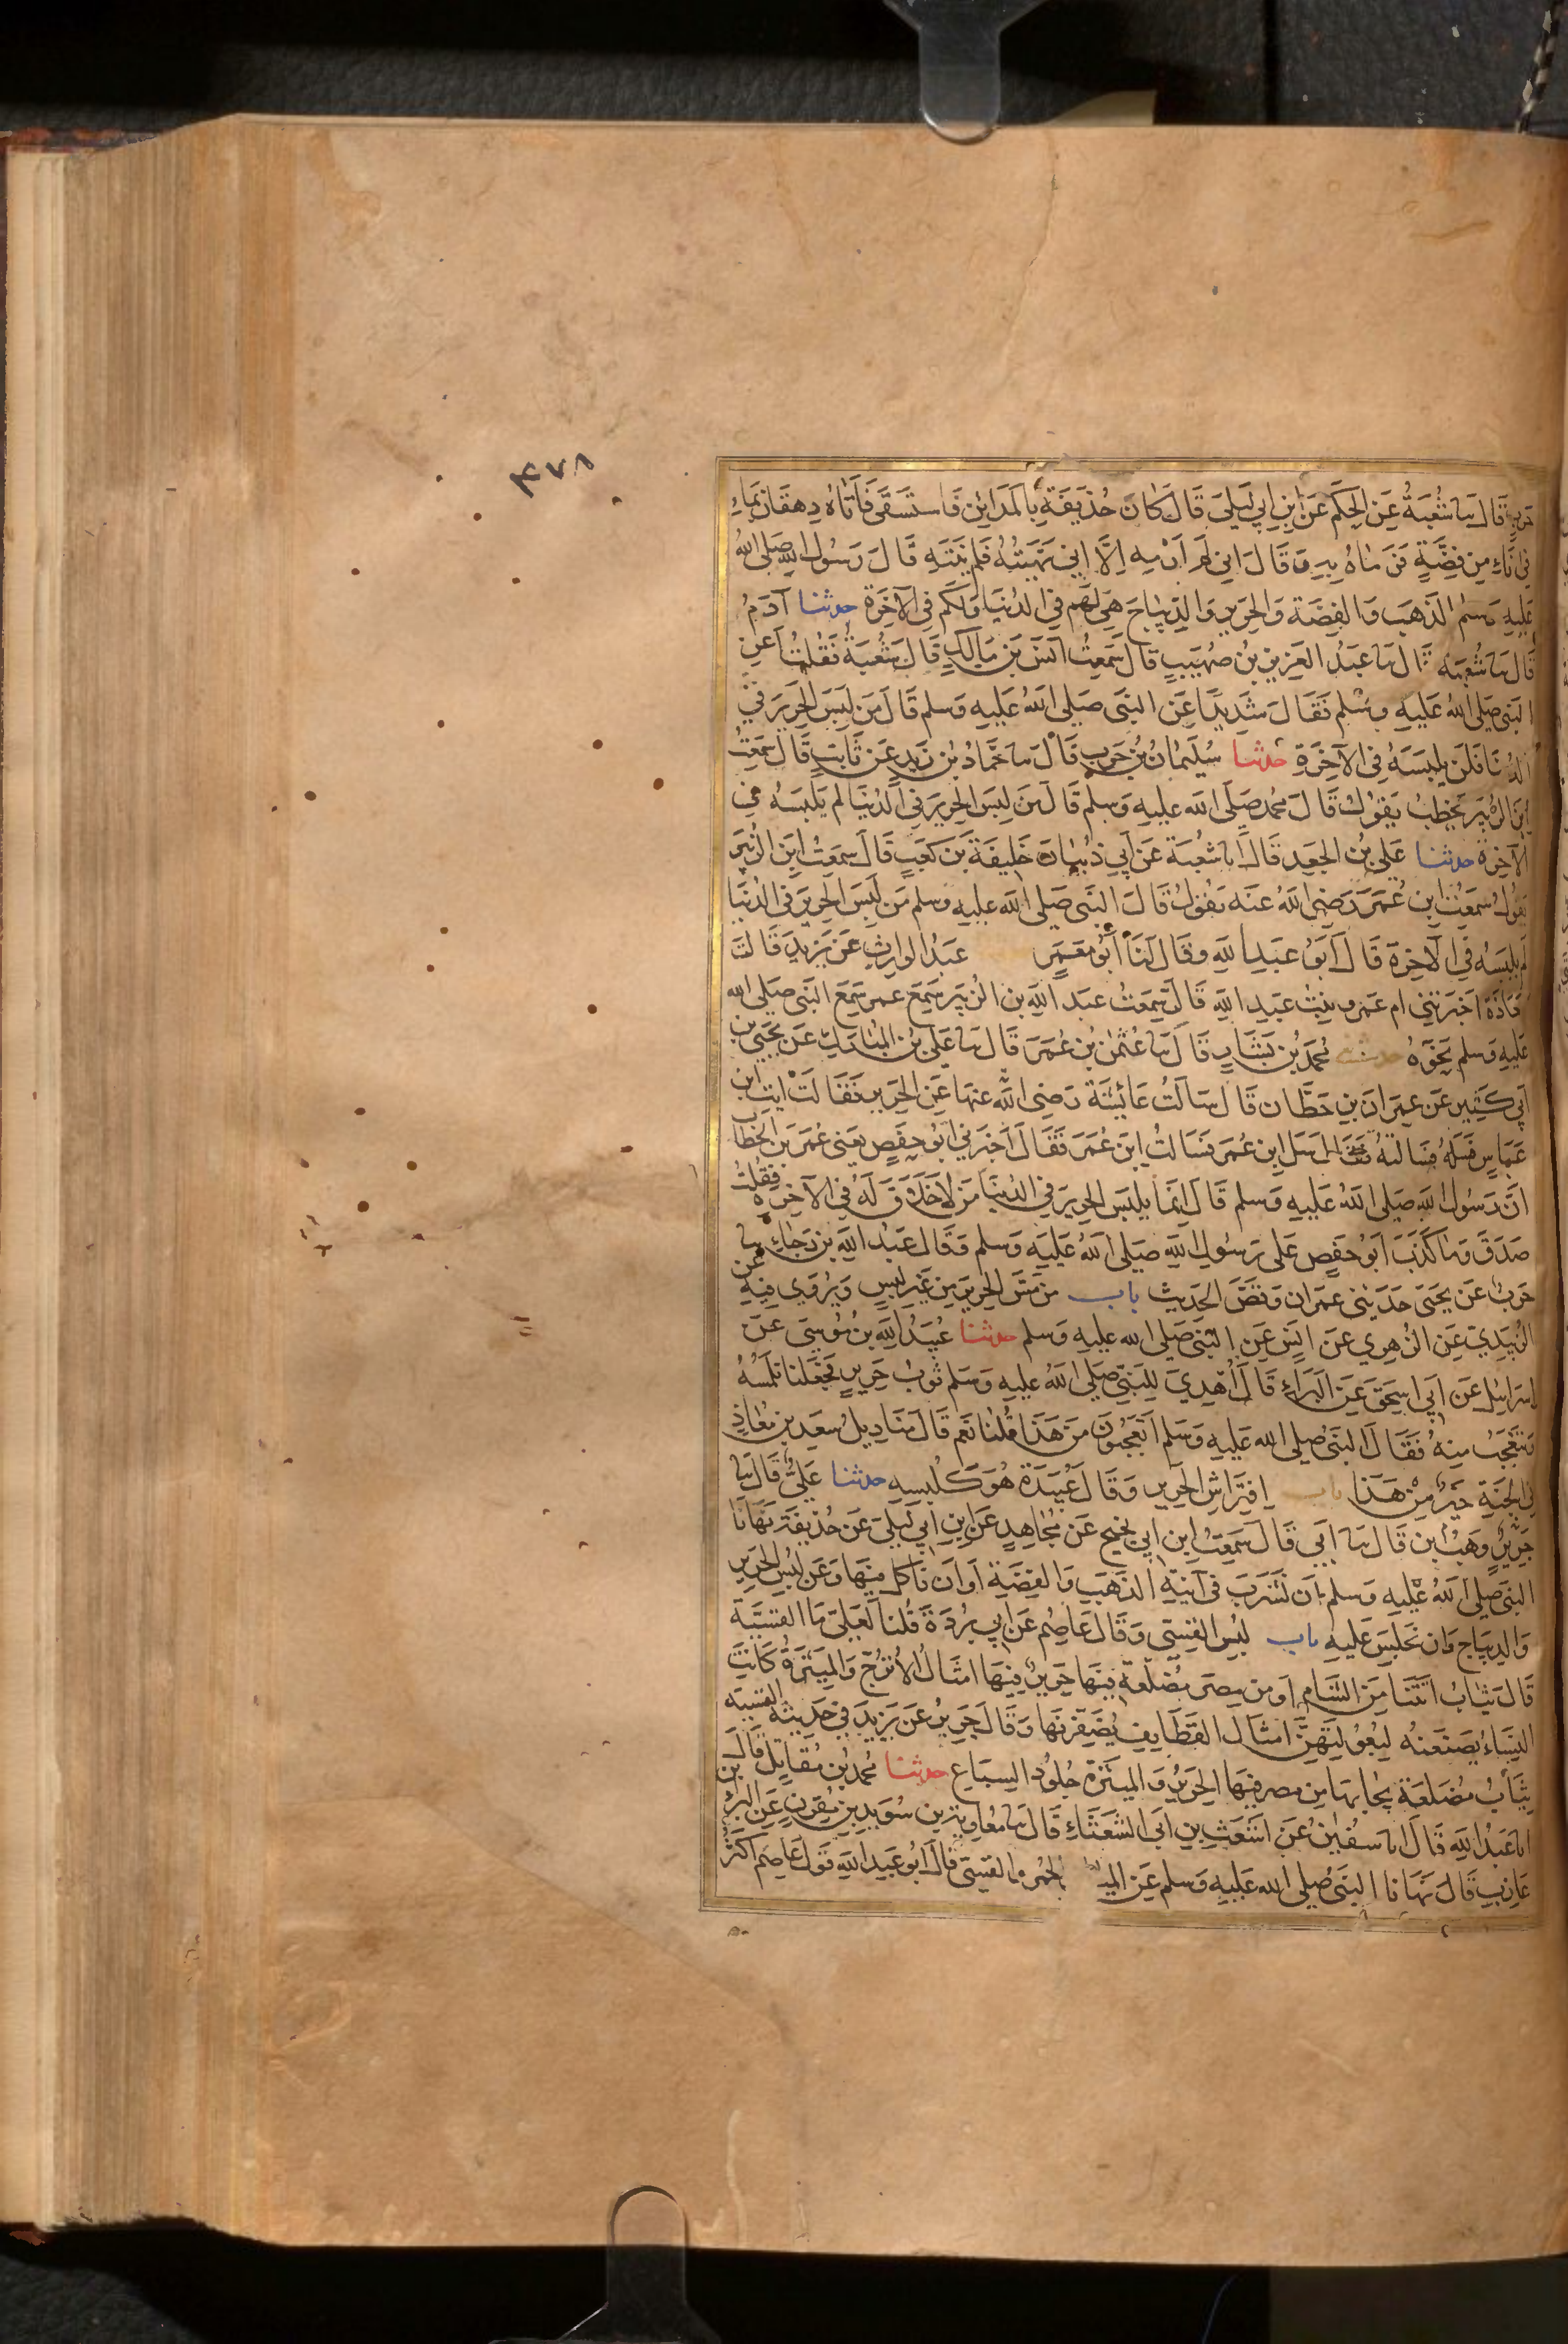 ٤٧٨
حرب قال سا شعبة عن الحكم عن ابن ابي ليلى قال كان حذيفة بالمداين فاستسقى فاتاه دهقان بماء
في اناء من فضة فرماه به وقال اني لم ارمه الا اني نهيته فلم ينته قال رسول الله صلى الله
عليه وسلم الذهب والفضة والحرير والديباج هي لهم في الدنيا ولكم في الآخرة حدثنا آدم
قال سا شعبة قال سا عبد العزيز بن صهيب قال سمعت انس بن مالك قال شعبة فقلت أعن
النبي صلى الله عليه وسلم فقال شديدا عن النبي صلى الله عليه وسلم قال من لبس الحرير في
الدنيا فلن يلبسه في الآخرة حدثنا سليمان بن حرب قال سا حماد بن زيد عن ثابت قال سمعت
ابن الزبير يخطب يقول قال محمد صلى الله عليه وسلم قال من لبس الحرير في الدنيا لم يلبسه في
الآخرة حدثنا علي بن الجعد قال انا شعبة عن ابي ذبيان خليفة بن كعب قال سمعت ابن الزبير
يقول سمعت ابن عمر رضي الله عنه يقول قال النبي صلى الله عليه وسلم من لبس الحرير في الدنيا
لم يلبسه في الآخرة قال ابو عبد الله وقال لنا ابو معمر عبد الوارث عن يزيد قالت
معاذة اخبرتني ام عمرو بنت عبد الله قال سمعت عبد الله بن الزبير سمع عمر سمع النبي صلى الله
عليه وسلم نحوه حدثنا محمد بن بشار قال سا عثمن بن عمر قال سا علي بن المبارك عن يحيى بن
ابي كثير عن عمران بن حطان قال سالت عائشة رضي الله عنها عن الحرير فقالت ايت ابن
عباس فسله فسالته فقال سل ابن عمر فسالت ابن عمر فقال اخبرني ابو حفص يعني عمر بن الخطاب
ان رسول الله صلى الله عليه وسلم قال انما يلبس الحرير في الدنيا من لا خلاق له في الآخرة فقلت
صدق وما كذب ابو حفص على رسول الله صلى الله عليه وسلم وقال عبد الله بن رجاء سا
حرب عن يحيى حدثني عمران وقص الحديث باب من مس الحرير من غير لبس ويروي فيه عن
الزبيدي عن الزهري عن انس عن النبي صلى الله عليه وسلم حدثنا عبيد الله بن موسى عن
اسرايل عن ابي اسحق عن البراء قال اُهدي للنبي صلى الله عليه وسلم ثوب حرير فجعلنا نلمسه
ونتعجب منه فقال النبي صلى الله عليه وسلم اتعجبون من هذا قلنا نعم قال مناديل سعد بن معاذ
في الجنة خير من هذا باب افتراش الحرير وقال عبيدة هو كلبسه حدثنا علي قال سا
جرير وهب بن قال سا ابي قال سمعت ابن ابي نجيح عن مجاهد عن ابن ابي ليلى عن حذيفة نهانا
النبي صلى الله عليه وسلم ان نشرب في آنية الذهب والفضة او ان ناكل منها وعن لبس الحرير
والديباج وان نجلس عليه باب لبس القسي وقال عاصم عن ابي بردة قلنا لعلي ما القسية
قال ثياب اتتنا من الشام او من مصر مضلعة فيها حرير فيها امثال الاترج والميثرة كانت
النساء يصنعنه لبعولتهن امثال القطايف يضفرنها وقال جرير عن يزيد في حديثه القسية
ثياب مضلعة يجا بها من مصر فيها الحرير والميثرة جلود السباع حدثنا محمد بن مقاتل قال
انا عبد الله قال انا سفين عن اشعث بن ابي الشعثاء قال سا معاوية بن سويد بن مقرن عن البراء بن
عازب قال نهانا النبي صلى الله عليه وسلم عن الميـ الحمر والقسي قال ابو عبد الله قول عاصم اكثر